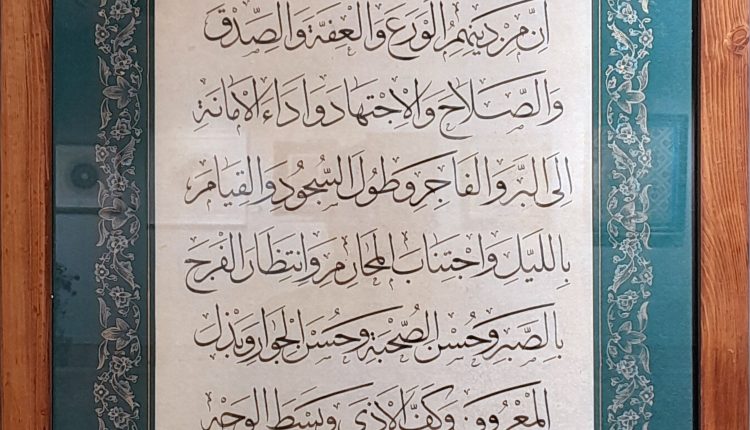 انَّ مِنْ دينِهِمُ الْوَرَعَ وَالْعِفَّةَ وَالصِّدْقَ
وَالصَّلاحَ وَالْاِجْتِهادَ وَاَداءَ الْاَمانَةِ
اِلَى الْبَرِّ وَالْفاجِرِ وَطُولَ السُّجُودِ وَالْقِيامَ
بِاللَّيْلِ وَاجْتِنابَ الْمَحارِمِ وَانْتِظارَ الْفَرَجِ
بِالصَّبْرِ وَحُسْنَ الصُّحْبَةِ وَحُسْنَ الْجِوارِ وَبَذْلَ
الْمَعْرُوفِ وَكَفَّ الْاَذى وَبَسْطَ الْوَجْهِ